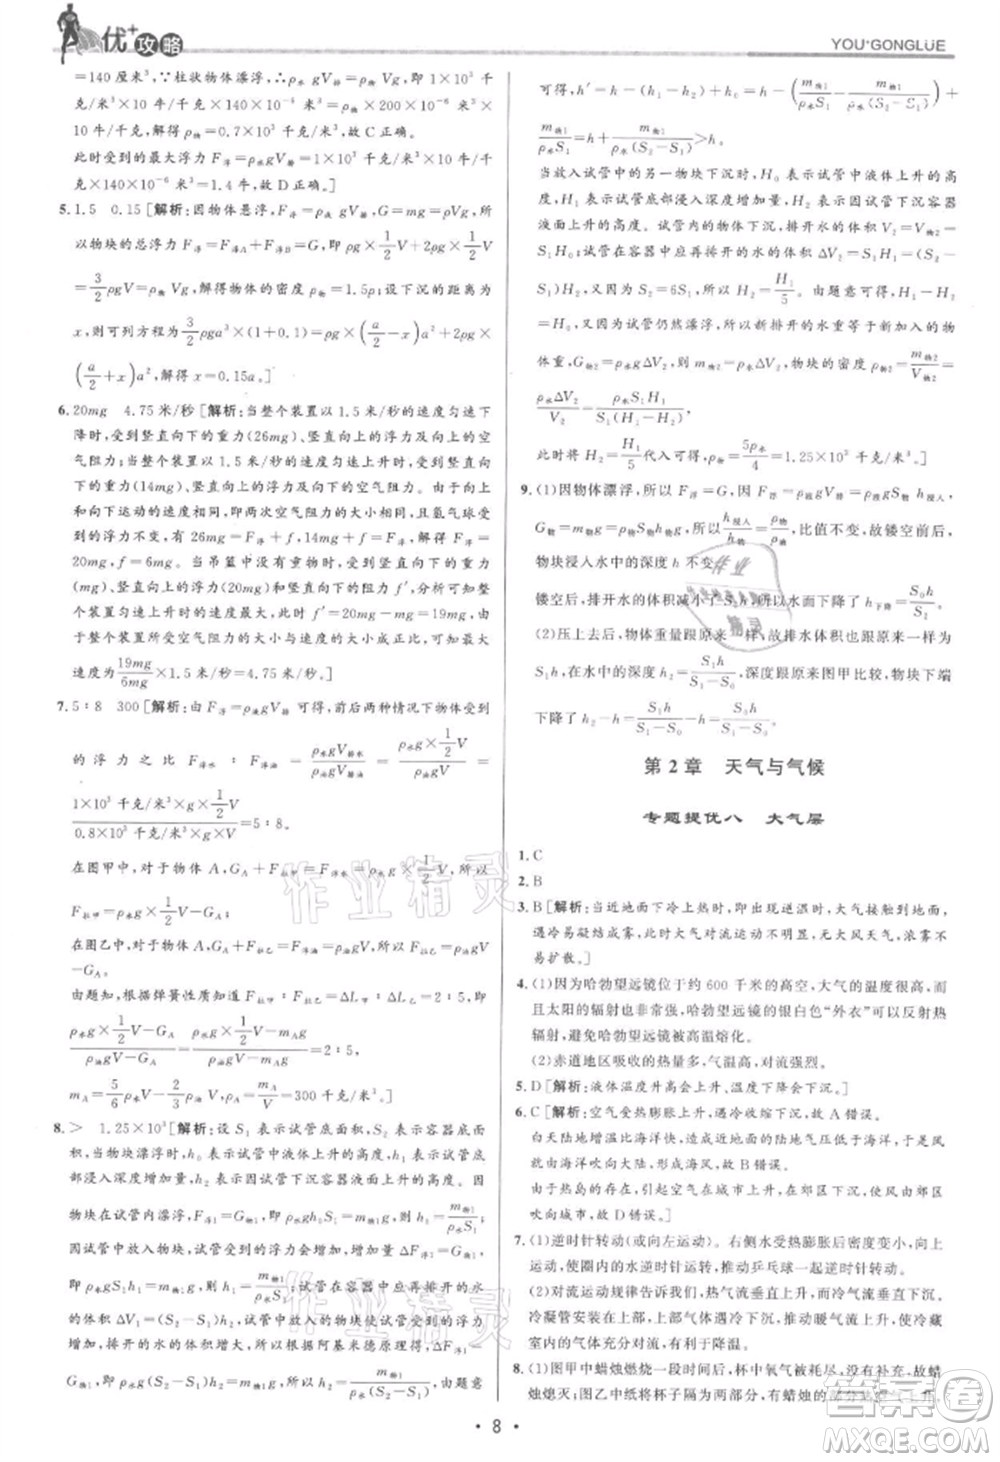 优+攻略
YOU+GONGLÜE
=140 厘米³,∵柱状物体漂浮,∴ρ物 gV=ρ水 gV排,1×10³ 千克/米³×140×10⁻⁶ 米³=ρ物×200×10⁻⁶ 米³×10 牛/千克,解得 ρ物=0.7×10³ 千克/米³,故 C 正确。
此时受到的最大浮力 F浮=ρ水gV排=1×10³ 千克/米³×140×10⁻⁶ 米³×10 牛/千克=1.4 牛,故 D 正确。]
5.1.5 0.15[解析:因物体悬浮,F浮=ρ液gV排,G=mg=ρVg,所以物块的总浮力 F浮=F浮A+F浮B=G,即 ρg×1/2 V+2ρg×1/2 V
=3/2 ρgV=ρ物 Vg,解得物体的密度 ρ物=1.5ρ;设下沉的距离为
x,可列方程为 3/2 ρga³×(1+0.1)=ρg×(a/2−x)a²+2ρg×
(a/2+x)a²,解得 x=0.15a。]
6.20mg 4.75 米/秒[解析:当整个装置以 1.5 米/秒的速度匀速下
降时,受到竖直向下的重力(26mg)、竖直向上的浮力和向上的空
气阻力;当整个装置以 1.5 米/秒的速度匀速上升时,受到竖直向
下的重力(14mg)、竖直向上的浮力和向下的空气阻力。由于向上
和向下运动的速度大小一样,所以两次空气阻力相等,且氢气球受
到的浮力不变,有 F+f=26mg,F=14mg+f,可得 F=
20mg,f=6mg。当吊篮中没有重物时,受到竖直向上的浮力
(20mg)、竖直向下的重力(mg)和竖直向下的阻力 f′,可得整个装置匀速上升时的速度大小:f′=20mg−mg=19mg,
由于整个装置所受空气阻力的大小与升降速度大小成正比,则速
度为 19mg/6mg×1.5 米/秒=4.75 米/秒。]
7.5∶8 300[解析:由 F浮=ρ液gV排 可得,前后两种情况下物体受到
的浮力之比 F浮水∶F浮油=ρ水gV排/ρ油gV排=(ρ水g×1/2 V)/(ρ油gV)=
(1×10³ 千克/米³×g×1/2 V)/(0.8×10³ 千克/米³×g×V)=5∶8。
在图甲中,对于物体 A,GA+F拉甲=F浮水=ρ水g×1/2 V,所以
F拉甲=ρ水g×1/2 V−GA。
在图乙中,对于物体 A,GA+F拉乙=F浮油=ρ油gV,所以 F拉乙=ρ油gV−GA。
由题知,根据弹簧性质知道 F拉甲∶F拉乙=ΔL甲∶ΔL乙=2∶5,即
(ρ水g×1/2 V−GA)/(ρ油gV−GA)=(ρ水g×1/2 V−mAg)/(ρ油gV−mAg)=2∶5,
mA=5/6 ρ水V−2/3 ρ油V,ρA=mA/V=300 千克/米³。]
8.> 1.25×10³[解析:设 S₁ 表示试管底面积,S₂ 表示容器底面
积,当物块漂浮时,h₀ 表示试管中液体上升的高度,h₁ 表示试管底
部浸入深度增加量,h₂ 表示试管下沉容器液面上升的高度。因
物块在试管内漂浮,F浮1=G物1,即 ρ水gh₀S₁=G物1,则 h₀=m物1/ρ水S₁;
因试管中放入物块,所以受到的浮力会增加,增加量 ΔF浮1=G物1,
即 ρ水gS₁h₁=G物1,所以 h₁=m物1/ρ水S₁;试管在容器中应再排开的水
的体积 ΔV₁=S₁h₁=(S₂−S₁)h₂,对试管中放入物块后试管受到
的浮力,则试管中放入物块后,根据阿基米德原理有 ΔF浮1=G物1,
即 ρ水g(S₂−S₁)h₂=G物1,解得 h₂=m物1/ρ水(S₂−S₁),由题意
可得,h′=h−(h₁−h₂)+h₀=h−(m物1/ρ水S₁−m物1/ρ水(S₂−S₁))+
m物1/ρ水S₁=h+m物1/ρ水(S₂−S₁)>h。
当放入试管中的另一物块下沉时,H₀ 表示试管中液体上升的高
度,H₁ 表示试管底部浸入深度增加量,H₂ 表示试管下沉容器液
面上升的高度。试管内物体下沉,排开水的体积 V₂=V物2=
S₁H₀,试管在容器中应再排开的水的体积 ΔV₂=S₁H₁=(S₂−
S₁)H₂,因为 S₂=6S₁,所以 H₂=H₁/5。由题意可得,液面高度不变,
H₀=H₁−H₂。因为试管仍然漂浮,所以新排开的水重等于新加物
体重,G物2=ρ水gΔV₂,则 m物2=ρ水ΔV₂,物块的密度 ρ物2=m物2/V物2
=ρ水ΔV₂/V₂=ρ水S₁H₁/S₁(H₁−H₂)。
此时将 H₂=H₁/5代入,可得 ρ物2=5ρ水/4=1.25×10³ 千克/米³。]
9.(1)因物体漂浮,所以 F浮=G,即 F浮=ρ液gV排=ρ液gS物h浸入,
G物=m物g=ρ物gV物=ρ物gS物h物,所以 h浸入/h物=ρ物/ρ液,比值不变,故镂空前后
物块浸入水中的深度 h 不变。
镂空前后,排开水的体积减小了 S₀h,所以液面下降 h下降=S₀h/S₂。
(2)压上去后,物体重量跟原来一样,故排水体积也跟原来一样为
S₁h,在水中的深度 h₂=S₁h/(S₁−S₀),深度跟原来图甲比,物块下端
下降了 h₂−h=S₁h/(S₁−S₀)−h=S₀h/(S₁−S₀)。
第 2 章 天气与气候
专题提优八 大气层
1.C
2.B
3.B[解析:当近地面下冷上热时,即出现逆温,大气接触到地面,
遇冷易凝结成雾,此时大气对流运动弱,无大风天气,浓雾不
易扩散。]
4.(1)因为哈勃望远镜位于约 600 千米的高空,大气极为稀薄,而
且太阳的辐射也非常强,哈勃望远镜的银白色“外衣”可以反射热
辐射,避免哈勃望远镜被高温熔化。
(2)赤道地区吸收的热量多,气温高,对流强烈。
5.D[解析:液体温度升高上升,温度低下沉。]
6.C[解析:空气受热膨胀上升,遇冷收缩下沉。
白天陆地升温比海洋快,因此海边的陆地气流上升,
因此海洋吹向大陆的是海风,B 错误。
由于城市热岛效应,空气在城市上升,在郊区下沉,
因此风从郊区吹向城市,D 错误。]
7.(1)逆时针转动(或向左运动)。右侧水受热膨胀后密度变小,向上
运动,使圈内的水逆时针运转,推动乒乓球一起逆时针转动。
(2)对流运动规律告诉我们,热气流垂直上升,冷气流垂直下沉。
冷凝管安装在上部,上部气体遇冷下沉,推动暖气流上升,使冷藏
室内的气体充分对流,有利于降温。
8.(1)图甲中蜡烛燃烧一段时间后,杯中氧气被耗尽,没有补充,故蜡
烛熄灭;图乙中纸将杯子隔为两部分,有蜡烛的部分热气上升,
作业精灵
答案圈
MXQE.COM
· 8 ·